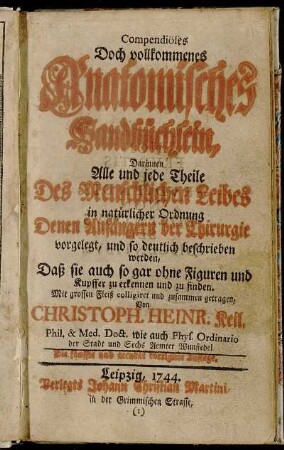 Compendiöses
Doch vollkommenes
Anatomisches
Handbüchlein,
Darinnen
Alle und jede Theile
Des Menschlichen Leibes
in natürlicher Ordnung
Denen Anfängern der Chirurgie
vorgelegt, und so deutlich beschrieben
werden,
Daß sie auch so gar ohne Figuren und
Kupffer zu erkennen und zu finden.
Mit grossen Fleiß colligiret und zusammen getragen,
Von
CHRISTOPH. HEINR. Keil.
Phil. & Med. Doct. wie auch Phys. Ordinario
der Stadt und Sechs Aemter Wunsiedel.
Die und Auflage.
Leipzig, 1744.
Verlegts Johann Christian Martini,
in der Grimmischen Strasse,
(1)